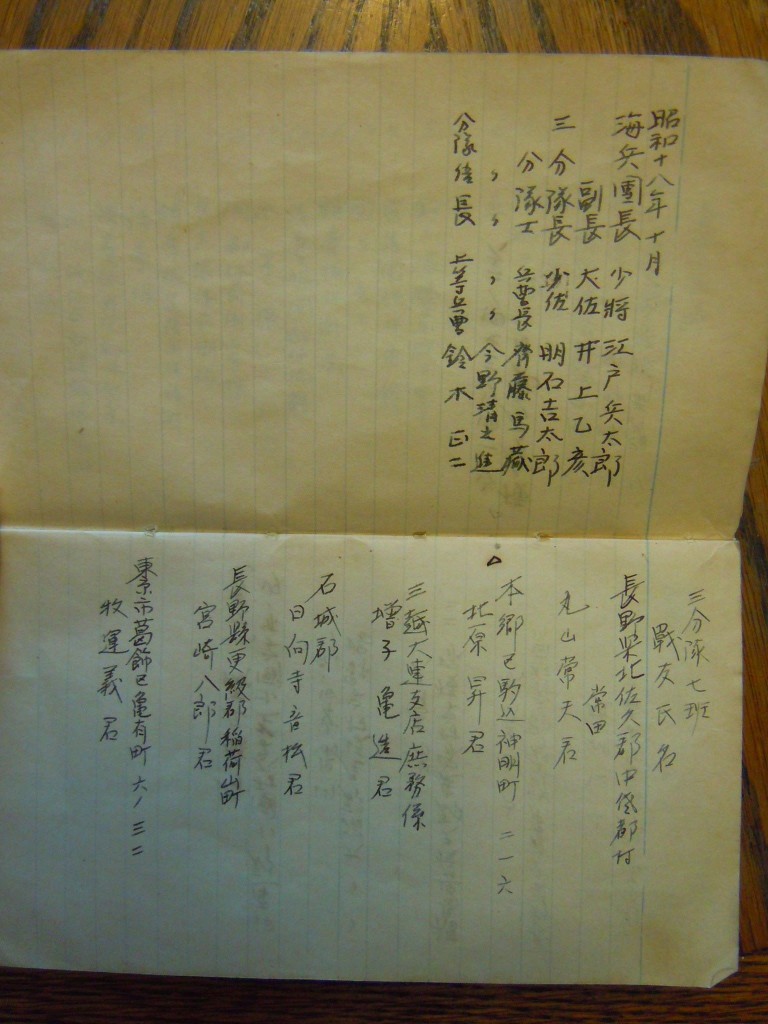 昭和十八年十月
海兵團長 少將 江戸兵太郎
副長 大佐 井上乙彦
三分隊長 少佐 明石吉太郎
分隊士 兵曹長 齊藤馬藏
〃 〃 〃 〃 今野清之進
分隊 長 上等兵曹 鈴木正二
三分隊七班
戰友氏名
長野県北佐久郡中佐都村
常田
丸山常夫君
本郷区駒込神明町 二一六
北原昇君
三越大連支店庶務係
増子亀造君
石城郡
日向寺音松君
長野縣更級郡稲荷山町
宮崎八郎君
東京市葛飾区亀有町六ノ三二
牧運義君